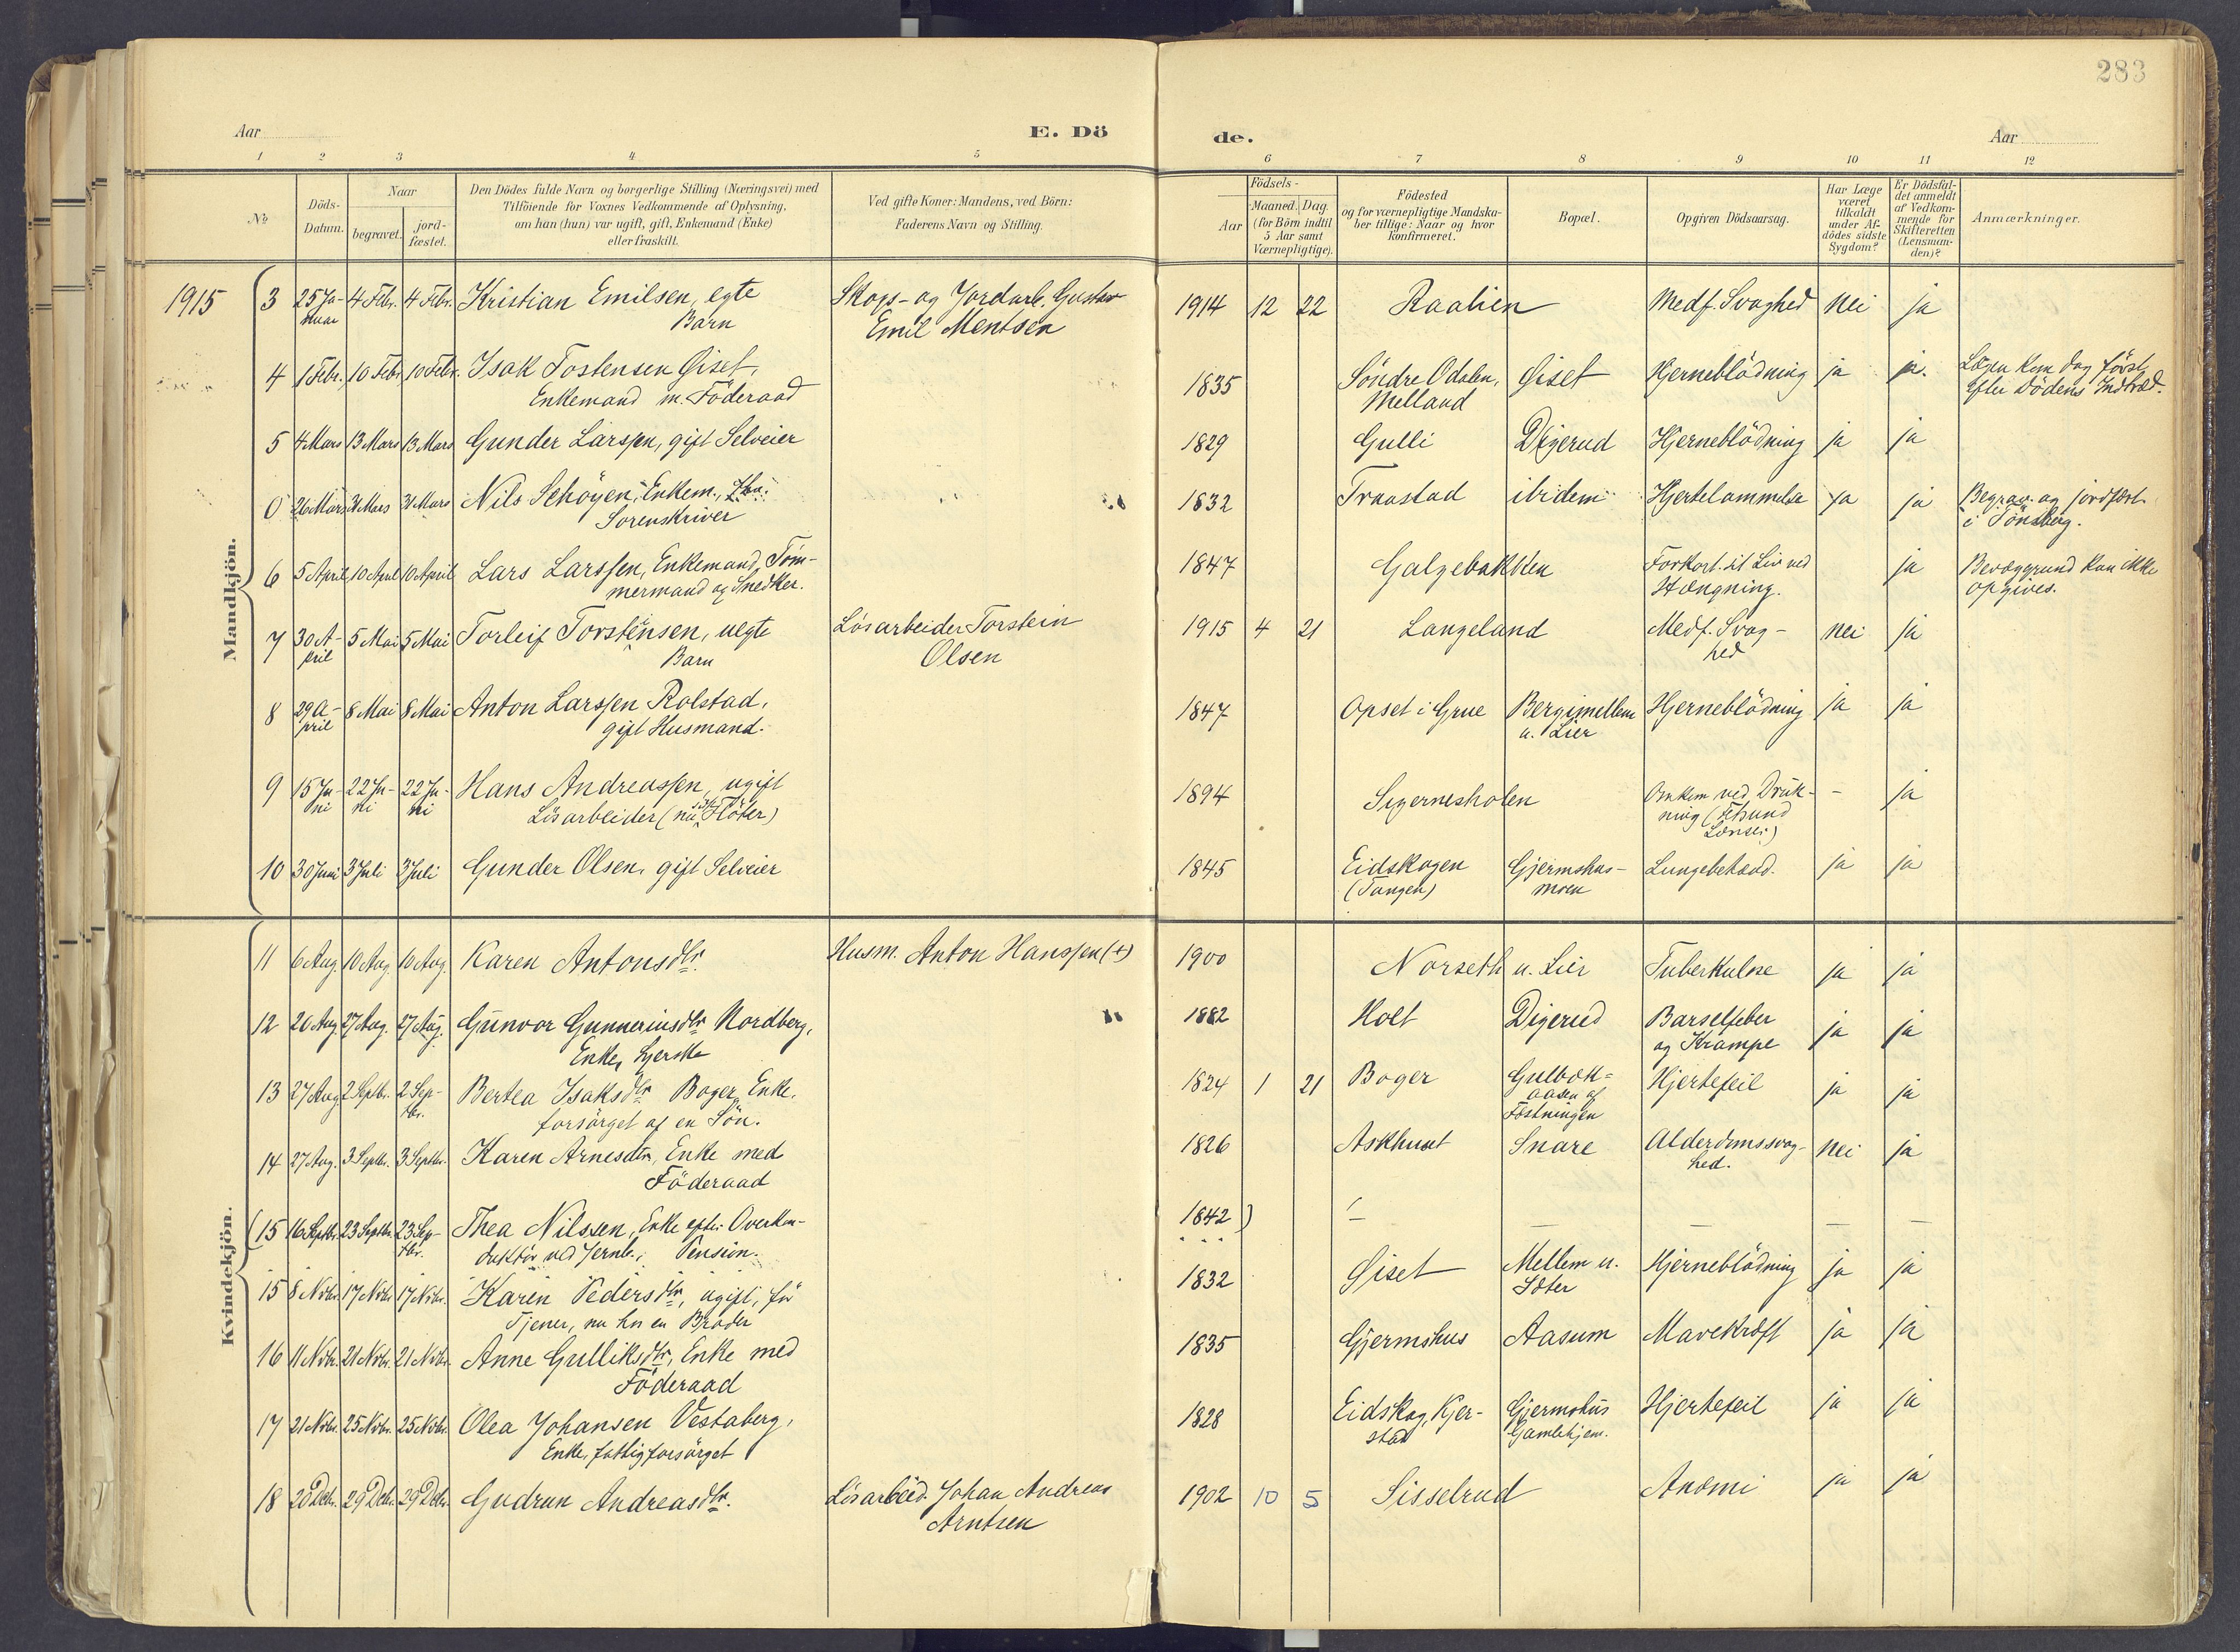 283
Aar
E. Dö
de.
Aar
1 2 3 4 5 6 7 8 9 10 11 12
No
Döds-
Datum.
Naar
begravet.
jord-
fæstet.
Den Dödes fulde Navn og borgerlige Stilling (Næringsvei) med
Tilföiende for Voxnes Vedkommende af Oplysning,
om han (hun) var ugift, gift, Enkemand (Enke)
eller fraskilt.
Ved gifte Koner: Mandens, ved Börn:
Faderens Navn og Stilling.
Födsels-
Aar
Maaned. Dag.
(for Börn indtil
5 Aar samt
Værnepligtige).
Födested
og for værnepligtige Mandska-
ber tillige: Naar og hvor
konfirmeret.
Bopæl.
Opgiven Dödsaarsag.
Har Læge
været
tilkaldt
under Af-
dödes sidste
Sygdom?
Er Dödsfal-
det anmeldt
af Vedkom-
mende for
Skifteretten
(Lensman-
den)?
Anmærkninger.
Mandkjön.
1915 3 25 Ja- 4 Febr. 4 Febr. Kristian Emilsen, egte Skogs- og Jordarb. Gustav 1914 12 22 Raalien Medf. Svaghed nei ja
nuar Barn Emil Mentsen
4 1 Febr. 10 Febr. 10 Febr. Isak Tostensen Giset, 1835 Söndre Odalen, Giset Hjerneblödning ja ja. Lægen kom dog först
Enkemand m. Föderaad Melland efter Dödens Indtræd.
5 4 Mars 13 Mars 13 Mars Gunder Larssen, gift Selveier 1829 Gulli Digerud Hjerneblödning ja ja
0 26 Mars 31 Mars 31 Mars Nils Schöyen, Enkem., 1832 Traastad ibidem Hjertelammelse ja ja Begrav. og jordfæst.
Sorenskriver i Tönsberg.
6 5 April 10 April 10 April Lars Larssen, Enkemand, Töm- 1847 Galgebakken Forkort. sit Liv ved ja Bevæggrund kan ikke
mermand og Snedker. Hængning. opgives.
7 30 A- 5 Mai 5 Mai Torleif Torstensen, uegte Lösarbeider Torstein 1915 4 21 Langeland Medf. Svag- nei ja
pril Barn Olsen hed
8 29 A- 8 Mai 8 Mai Anton Larssen Rolstad, 1847 Opset i Grue Bergimellem Hjerneblödning ja ja
pril gift Husmand. u. Lier
9 15 Ju- 22 Ju- 22 Ju- Hans Andreassen, ugift 1894 Sigernesholen Omkom ved Druk- - ja
ni ni ni Lösarbeider (nu sidst Flöter) ning (Fetsund
Lænser)
10 30 Juni 3 Juli 3 Juli Gunder Olsen, gift Selveier 1845 Eidskogen Gjermshus- Lungebetænd. ja ja
(Tangen) moen
Kvindekjön.
11 6 Aug. 10 Aug. 10 Aug. Karen Antonsdtr. Husm. Anton Hanssen (+) 1900 Norseth u. Lier Tuberkulose ja ja
12 20 Aug 27 Aug. 27 Aug. Gunvor Gunneriusdtr Nordberg, 1882 Holt Digerud Barselfeber ja ja
Enke, og Krampe
13 27 Aug. 2 Septbr. 2 Sep- Bertea Isaksdtr Boger, Enke, 1824 1 21 Boger Gulbok= Hjertefeil ja ja
tbr. forsörget af en Sön. aasen af
Fæstningen
14 27 Aug. 3 Septbr. 3 Septbr. Karen Arnesdtr, Enke med 1826 Askhuset Snare Alderdomssvag- nei ja
Föderaad hed.
(15 16 Septbr. 23 Septbr. 23 Sep- Thea Nilssen, Enke efter Overkon- 1842) — — — — —
tbr. duktör ved Jernb., Pension.
15 8 Novbr. 17 Novbr. 17 Novbr. Karen Pedersdtr, ugift, för 1832 Giset Mellem u. Hjerneblödning ja ja
Tjener, nu hos en Broder Sæter
16 11 Novbr. 21 Novbr. 21 Novbr. Anne Gulliksdtr, Enke med 1835 Gjermshus Aasum Mavekræft ja ja
Föderaad
17 21 Novbr. 25 Novbr. 25 Novbr. Olea Johansen Vestaberg, 1828 Eidskog, Kjer- Gjermshus Hjertefeil ja ja
Enke, fattigforsörget stad Gamlehjem.
18 20 Decbr. 29 Decbr. 29 Decbr. Gudrun Andreasdtr. Lösarbeid. Johan Andreas 1902 10 5 Sisselrud Anæmi ja ja
Arntsen